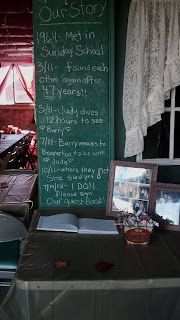 Our Story
1964- Met in
Sunday School
3/11- found each
other again after
47 years!!
5/11- Judy drives
12 hours to see
Barry
7/11- Barry moves to
Beaverton to be with
Judy
10/11-
She Said yes
I DO!!
Please sign
Our guest Book!